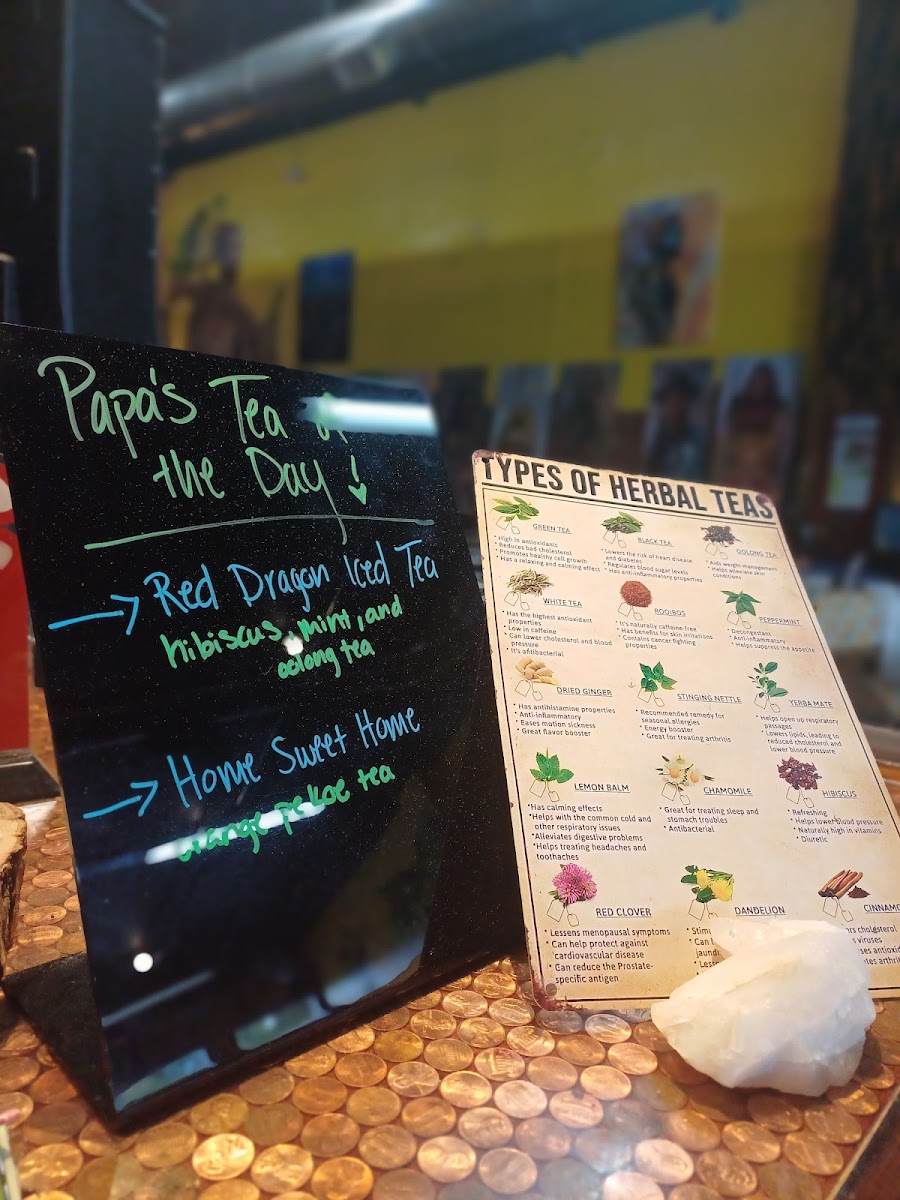 Papa's Tea of
the Day!
Red Dragon Iced Tea
hibiscus, mint, and
oolong tea
Home Sweet Home
orange pekoe tea
TYPES OF HERBAL TEAS
GREEN TEA
* High in antioxidants
* Reduces bad cholesterol
* Promotes healthy cell growth
* Has a relaxing and calming effect
BLACK TEA
* Lowers the risk of heart disease
and diabetes
* Regulates blood sugar levels
* Has anti-inflammatory properties
OOLONG TEA
* Aids weight management
* Helps alleviate skin
conditions
WHITE TEA
* Has the highest antioxidant
properties
* Low in caffeine
* Can lower cholesterol and blood
pressure
* It's atibacterial
ROOIBOS
* It's naturally caffeine-free
* Has benefits for skin irritations
* Contains cancer fighting
properties
PEPPERMINT
* Decongestant
* Anti-inflammatory
* Helps suppress the appetite
DRIED GINGER
* Has antihistamine properties
* Anti-inflammatory
* Eases motion sickness
* Great flavor booster
STINGING NETTLE
* Recommended remedy for
seasonal allergies
Energy booster
* Great for treating arthritis
YERBA MATE
* Helps open up respiratory
passages
* Lowers lipids, leading to
reduced cholesterol and
lower blood pressure
LEMON BALM
*Has calming effects
*Helps with the common cold and
other respiratory issues
*Alleviates digestive problems
*Helps treating headaches and
toothaches
CHAMOMILE
* Great for treating sleep and
stomach troubles
* Antibacterial
HIBISCUS
* Refreshing
* Helps lower blood pressure
* Naturally high in vitamins
* Diuretic
RED CLOVER
* Lessens menopausal symptoms
* Can help protect against
cardiovascular disease
* Can reduce the Prostate-
specific antigen
DANDELION
* Stim
* Can
jaund
* Less
CINNAMO
cholesterol
viruses
antioxid
arthri